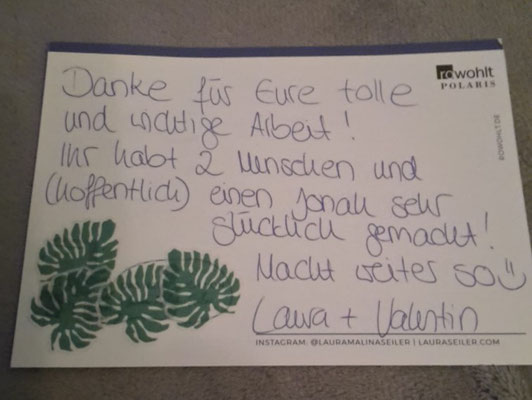 Danke für Eure tolle
rowohlt
POLARIS
und wichtige Arbeit!
ROWOHLT.DE
Ihr habt 2 Menschen und
(hoffentlich) einen Jonah sehr
glücklich gemacht!
Macht weiter so
Laura + Valentin
INSTAGRAM: @LAURAMALINASEILER | LAURASEILER.COM